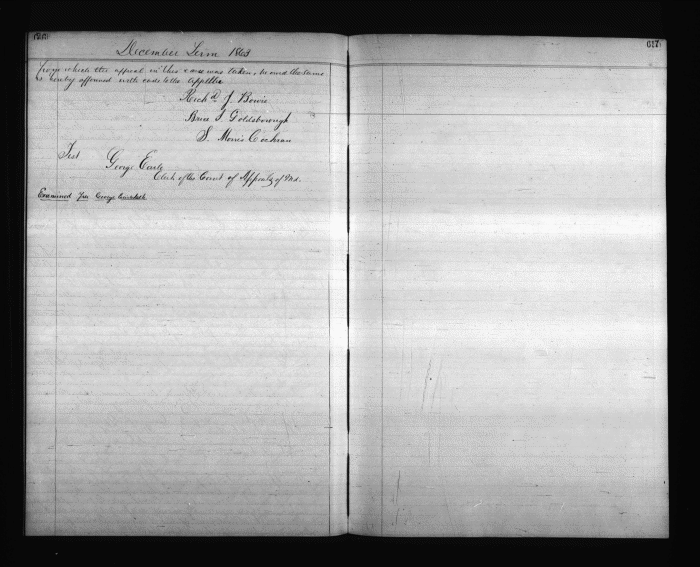 616
December Term 1863
617
from which the appeal in this case was taken, be and the same
is hereby affirmed with costs to the Appellee
Rich.d J. Bowie
Brice J Goldsborough
S. Morris Cochran
Test
George Earle
Clerk of the Court of Appeals of Md.
Examined Per George Earle Clk